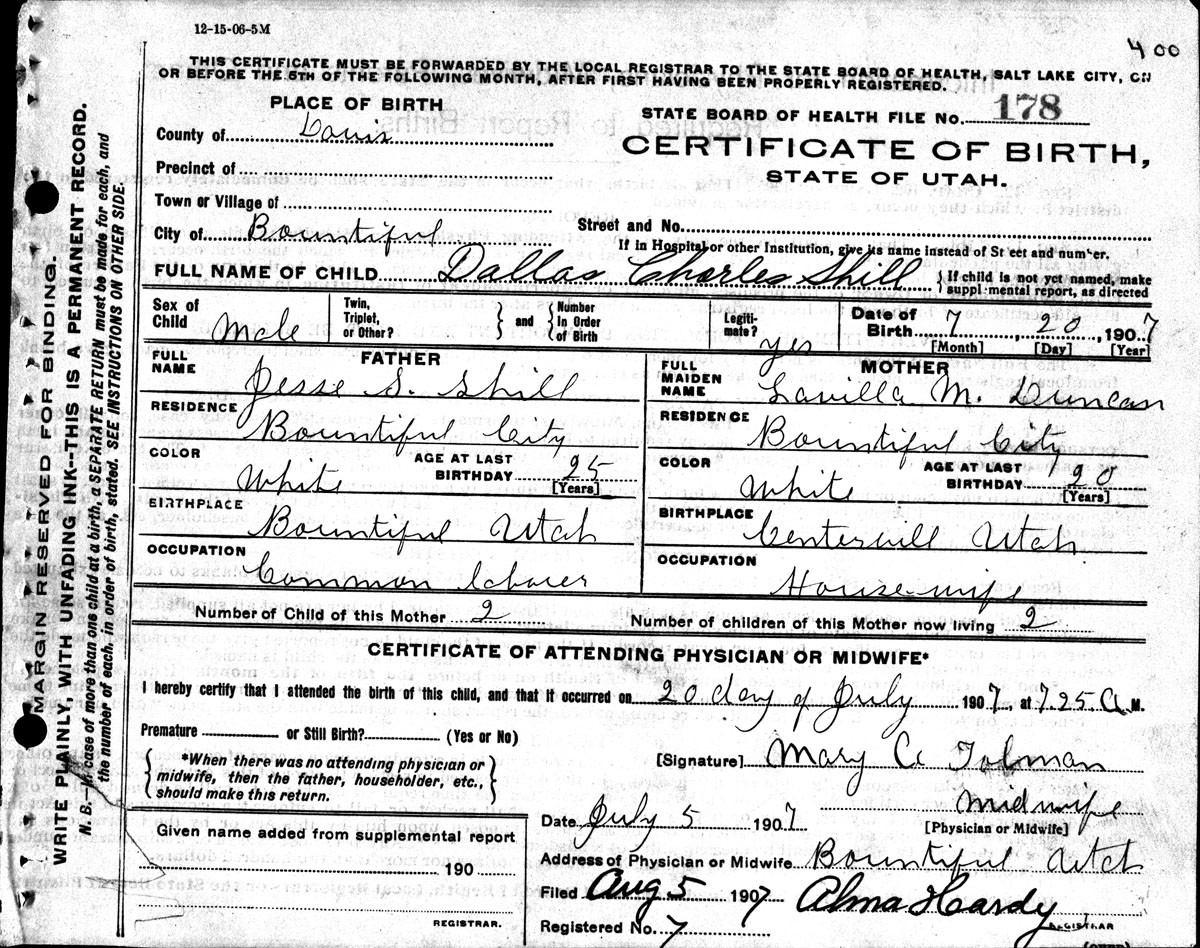 12-15-06-5M
4 00
THIS CERTIFICATE MUST BE FORWARDED BY THE LOCAL REGISTRAR TO THE STATE BOARD OF HEALTH, SALT LAKE CITY, ON
OR BEFORE THE 5TH OF THE FOLLOWING MONTH, AFTER FIRST HAVING BEEN PROPERLY REGISTERED.
PLACE OF BIRTH
STATE BOARD OF HEALTH FILE No. 178
County of Davis
CERTIFICATE OF BIRTH,
STATE OF UTAH.
Precinct of
Town or Village of
City of Bountiful Street and No.
If in Hospital or other Institution, give its name instead of Street and number.
FULL NAME OF CHILD Dallas Charles Shill { If child is not yet named, make
supplemental report, as directed
Sex of Child Male Twin, Triplet, or Other? } and { Number In Order of Birth Legiti-mate? yes Date of Birth 7 20, 1907
[Month] [Day] [Year]
FATHER
FULL NAME Jesse S. Shill
RESIDENCE Bountiful City
COLOR White AGE AT LAST BIRTHDAY 25 [Years]
BIRTHPLACE Bountiful Utah
OCCUPATION Common laborer
MOTHER
FULL MAIDEN NAME Lavilla M. Duncan
RESIDENCE Bountiful City
COLOR White AGE AT LAST BIRTHDAY 20 [Years]
BIRTHPLACE Centervill Utah
OCCUPATION House-wife
Number of Child of this Mother 2 Number of children of this Mother now living 2
CERTIFICATE OF ATTENDING PHYSICIAN OR MIDWIFE*
I hereby certify that I attended the birth of this child, and that it occurred on 20 day of July 1907 at 7.25 A M.
Premature or Still Birth? (Yes or No)
{ *When there was no attending physician or
midwife, then the father, householder, etc.,
should make this return. }
[Signature] Mary A Tolman
Midwife
[Physician or Midwife]
Date July 5 1907
Address of Physician or Midwife Bountiful Utah
Filed Aug 5 1907 Alma Hardy
REGISTRAR
Registered No. 7
Given name added from supplemental report
190
REGISTRAR.
MARGIN RESERVED FOR BINDING.
WRITE PLAINLY, WITH UNFADING INK--THIS IS A PERMANENT RECORD.
N. B.--In case of more than one child at a birth, a SEPARATE RETURN must be made for each, and
the number of each, in order of birth, stated. SEE INSTRUCTIONS ON OTHER SIDE.